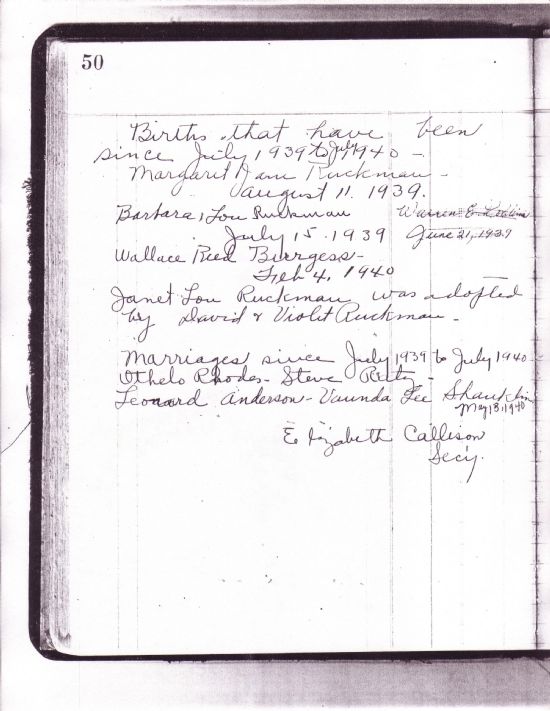 50
Births that have been
since July 1939 to July 1940 -
Margaret Jane Ruckman -
August 11. 1939.
Barbara Lou Ruckman
Warren E.
July 15. 1939
June 21, 1939
Wallace Reed Burgess -
Feb 4, 1940
Janet Lou Ruckman was adopted
by David & Violet Ruckman -
Marriages since July 1939 to July 1940 -
Othelo Rhodes - Steve
Leonard Anderson - Vaunda Lee Shanklin
May 13, 1940
Elizabeth Callison
Sec'y.